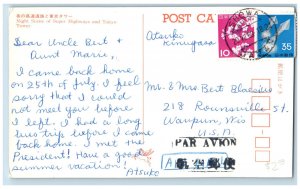 夜の高速道路と東京タワー
Night Scene of Super Highways and Tokyo
Tower
POST CA
Dear Uncle Bert &
Aunt Marie,
I came back home
on 25th of July. I feel
sorry that I could
not meet you before
I left. I had a long
bus trip before I come
back home. I met the
President! Have a good
summer vacation!
Atsuko
Atsuko
Kinugasa
Mr. & Mrs Bert Blaesius
218 Rounsville St.
Waupun, Wis
U.S.A.
PAR AVION
10
35